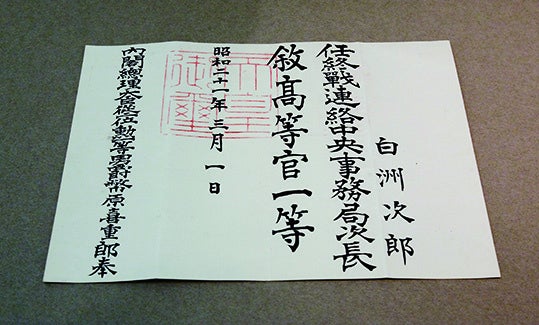 白洲次郎
任終戰連絡中央事務局次長
敍高等官一等
昭和二十一年三月一日
天皇御璽
內閣總理大臣正二位勳一等男爵幣原喜重郎奉